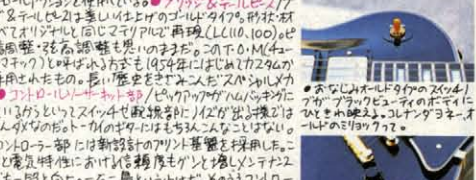 ブリッジ&テールピース/ブ
&テールピースは美しい仕上げのゴールドタイプ。形状・材
べてオリジナルと同じマテリアルで再現(LC110,100)。ピ
調整・弦高調整も思いのままだ。このT・O・M(チュー
マチック)と呼ばれる方式も1954年にはじめてカスタムが
用されたもの。長い歴史をきざみこんだスペシャルメカ
●コントロール/サーキット部/ピックアップがハムバッキングに
いるからといってスイッチや配線部にノイズが出る様では
んダメなのだ。トーカイのギターにはもちろんこんなことはない。
コントローラー部には新設計のプリント基盤を採用した。こ
と電気特性における信頼度もグンと増しメンテナンス
●おなじみオールドタイプのスイッチノ
ブがブラックビューティのボディに
ひときわ映える。コレナンダヨネー、オ
ールドのミリョクって。